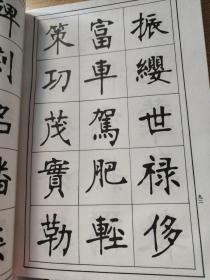 振纓世禄侈
富車駕肥輕
策功茂實勒